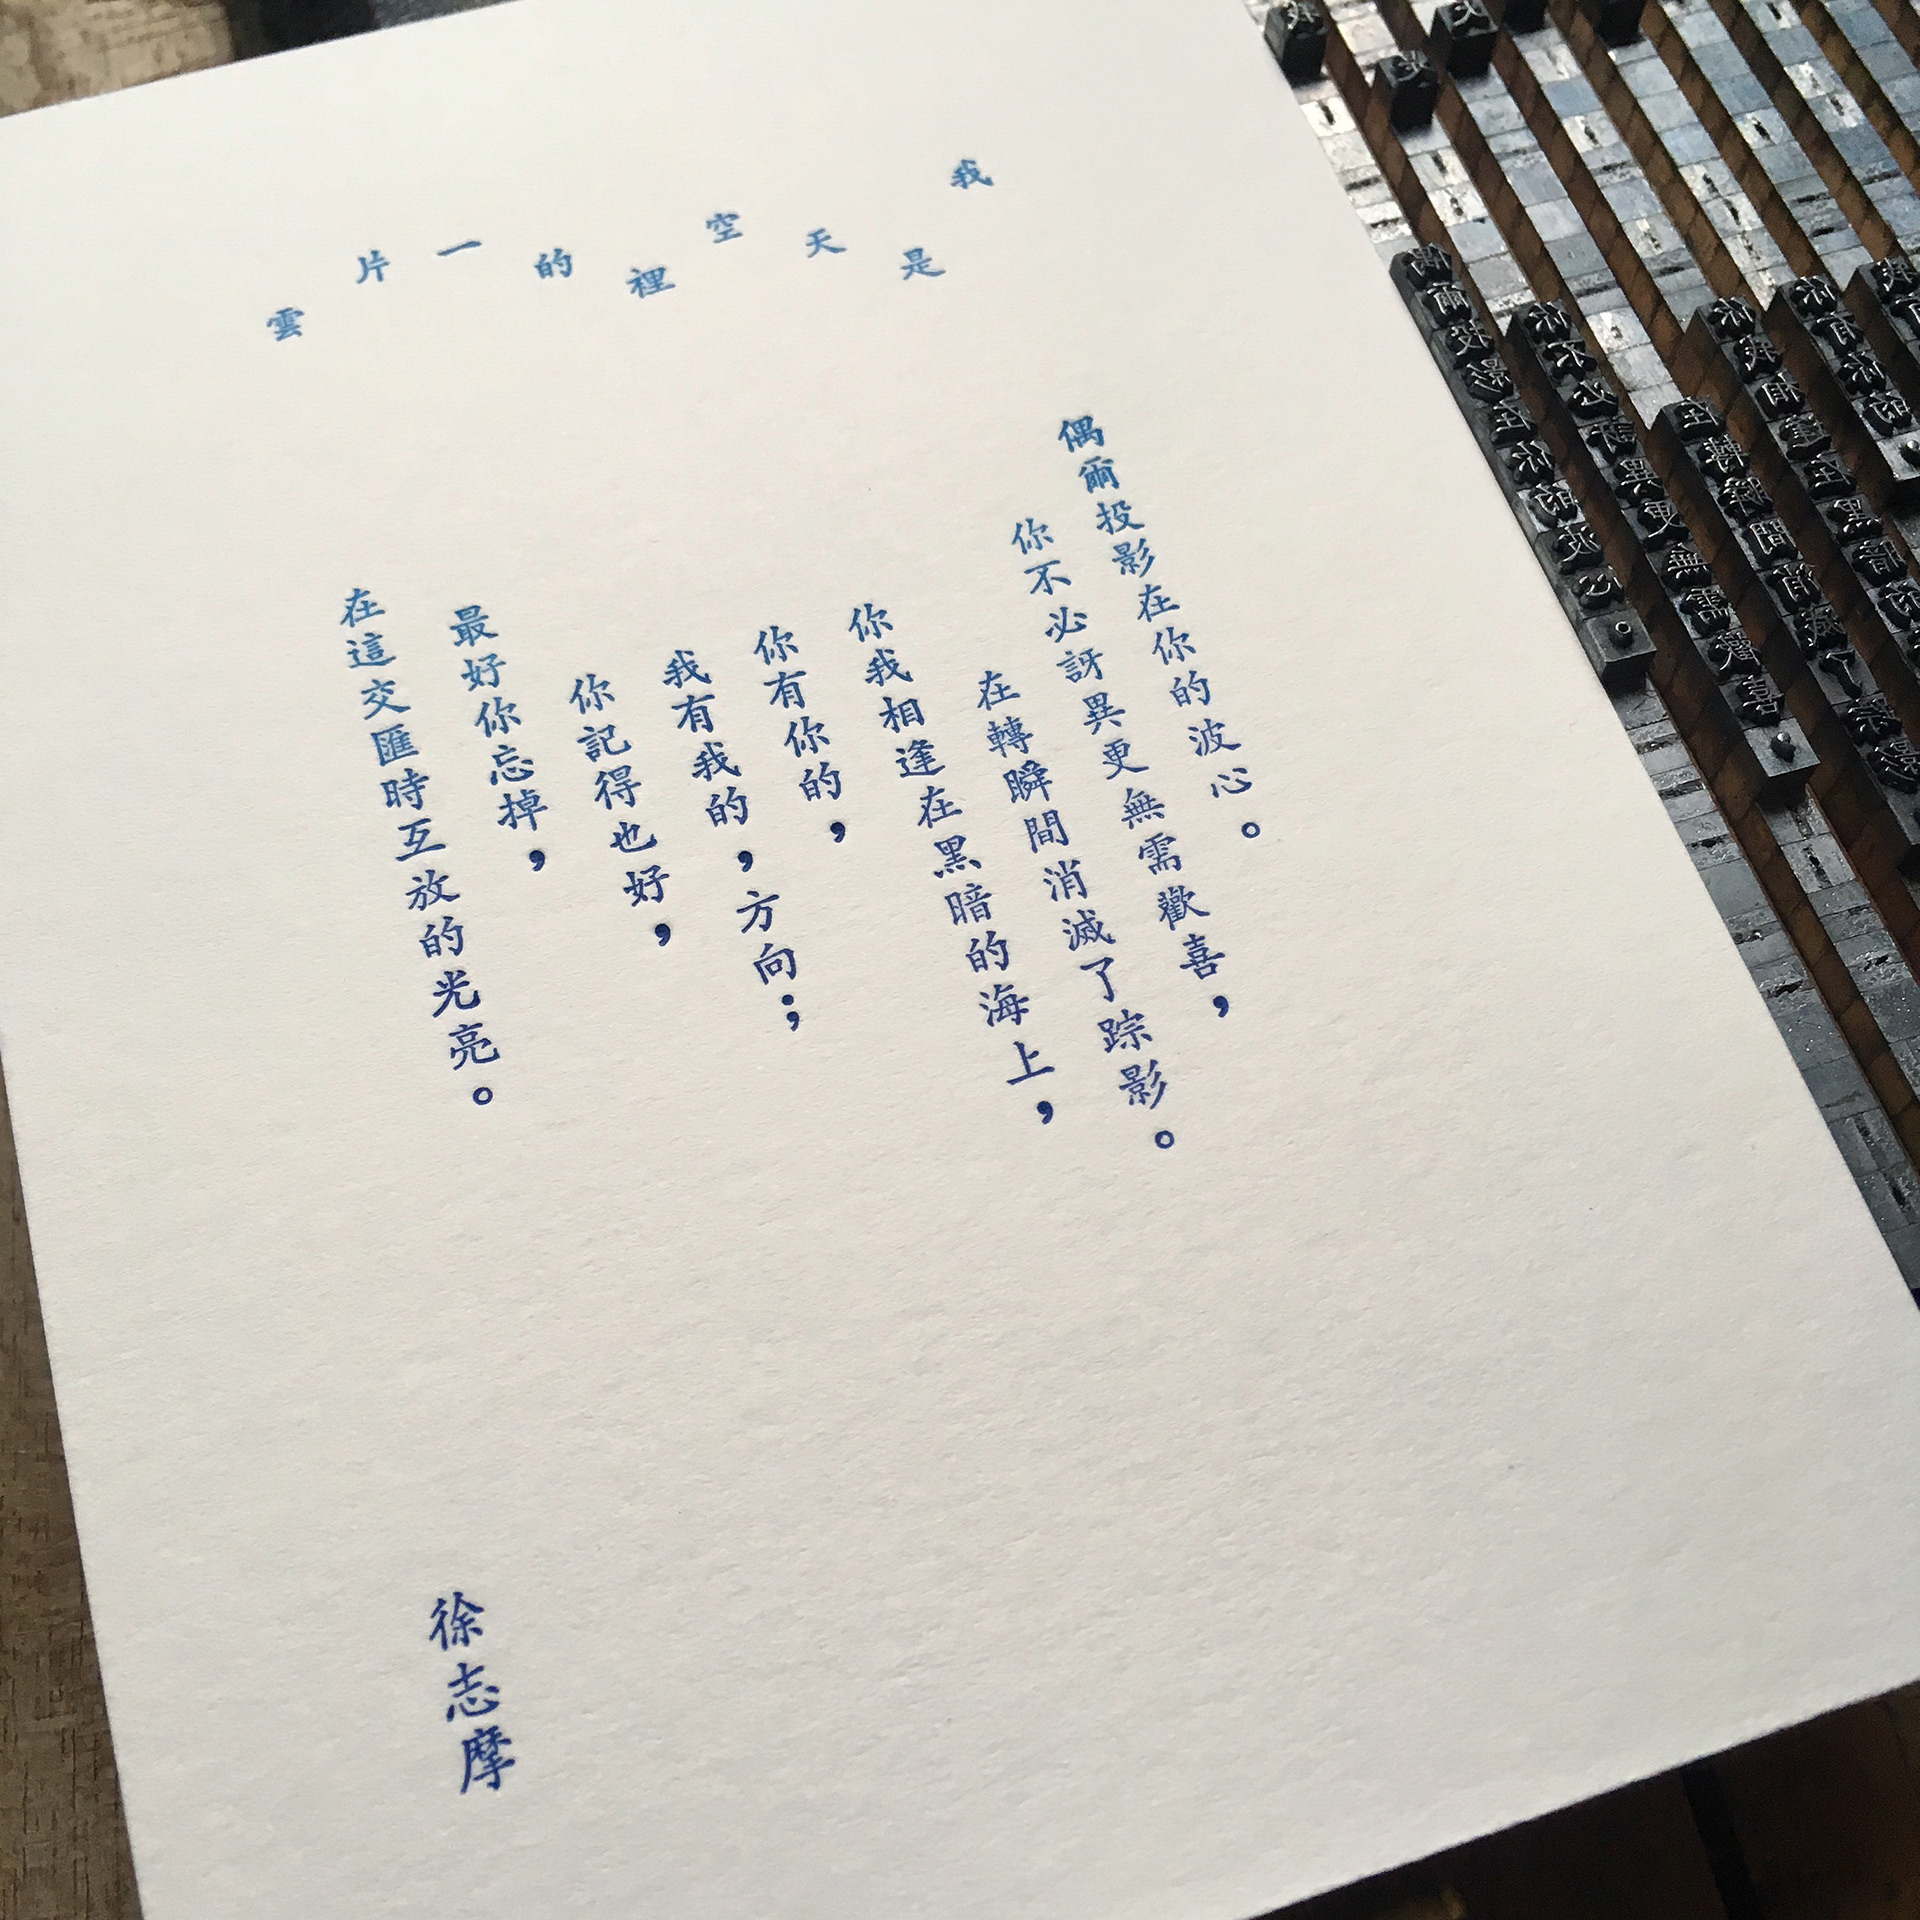 我是天空裡的一片雲
偶爾投影在你的波心。
你不必訝異更無需歡喜，
在轉瞬間消滅了踪影。
你我相逢在黑暗的海上，
你有你的，
我有我的，方向；
你記得也好，
最好你忘掉，
在這交匯時互放的光亮。
徐志摩